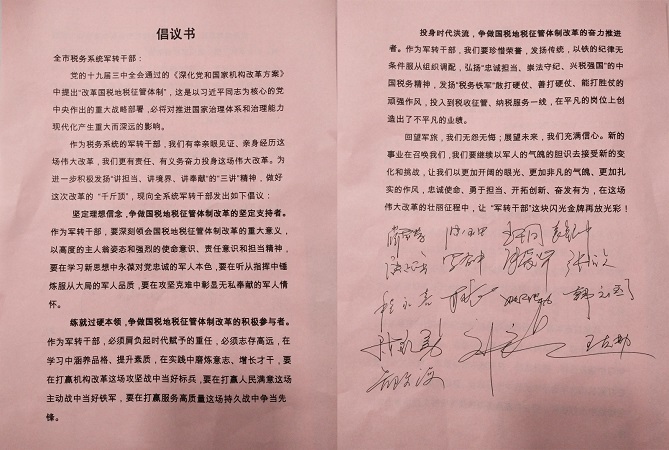 倡议书
全市税务系统军转干部：
党的十九届三中全会通过的《深化党和国家机构改革方案》
中提出“改革国税地税征管体制”，这是以习近平同志为核心的党
中央作出的重大战略部署，必将对推进国家治理体系和治理能力
现代化产生重大而深远的影响。
作为税务系统的军转干部，我们有幸亲眼见证、亲身经历这
场伟大改革，我们更有责任、有义务奋力投身这场伟大改革。为
进一步积极发扬“讲担当、讲境界、讲奉献”的“三讲”精神，做好
这次改革的“千斤顶”，现向全系统军转干部发出如下倡议：
坚定理想信念，争做国税地税征管体制改革的坚定支持者。
作为军转干部，要深刻领会国税地税征管体制改革的重大意义，
以高度的主人翁姿态和强烈的使命意识、责任意识和担当精神，
要在学习新思想中永葆对党忠诚的军人本色，要在听从指挥中锤
炼服从大局的军人品质，要在攻坚克难中彰显无私奉献的军人情
怀。
练就过硬本领，争做国税地税征管体制改革的积极参与者。
作为军转干部，必须肩负起时代赋予的重任，必须志存高远，在
学习中涵养品格、提升素质，在实践中磨炼意志、增长才干，要
在打赢机构改革这场攻坚战中当好标兵，要在打赢人民满意这场
主动战中当好铁军，要在打赢服务高质量这场持久战中争当先
锋。
投身时代洪流，争做国税地税征管体制改革的奋力推进
者。作为军转干部，我们要珍惜荣誉，发扬传统，以铁的纪律无
条件服从组织调配，弘扬“忠诚担当、崇法守纪、兴税强国”的中
国税务精神，发扬“税务铁军”敢打硬仗、善打硬仗、能打胜仗的
顽强作风，投入到税收征管、纳税服务一线，在平凡的岗位上创
造出了不平凡的业绩。
回望军旅，我们无怨无悔；展望未来，我们充满信心。新的
事业在召唤我们，我们要继续以军人的气魄的胆识去接受新的变
化和挑战，让我们以更加开阔的眼光、更加非凡的气魄、更加扎
实的作风，忠诚使命、勇于担当、开拓创新、奋发有为，在这场
伟大改革的壮丽征程中，让 “军转干部”这块闪光金牌再放光彩！